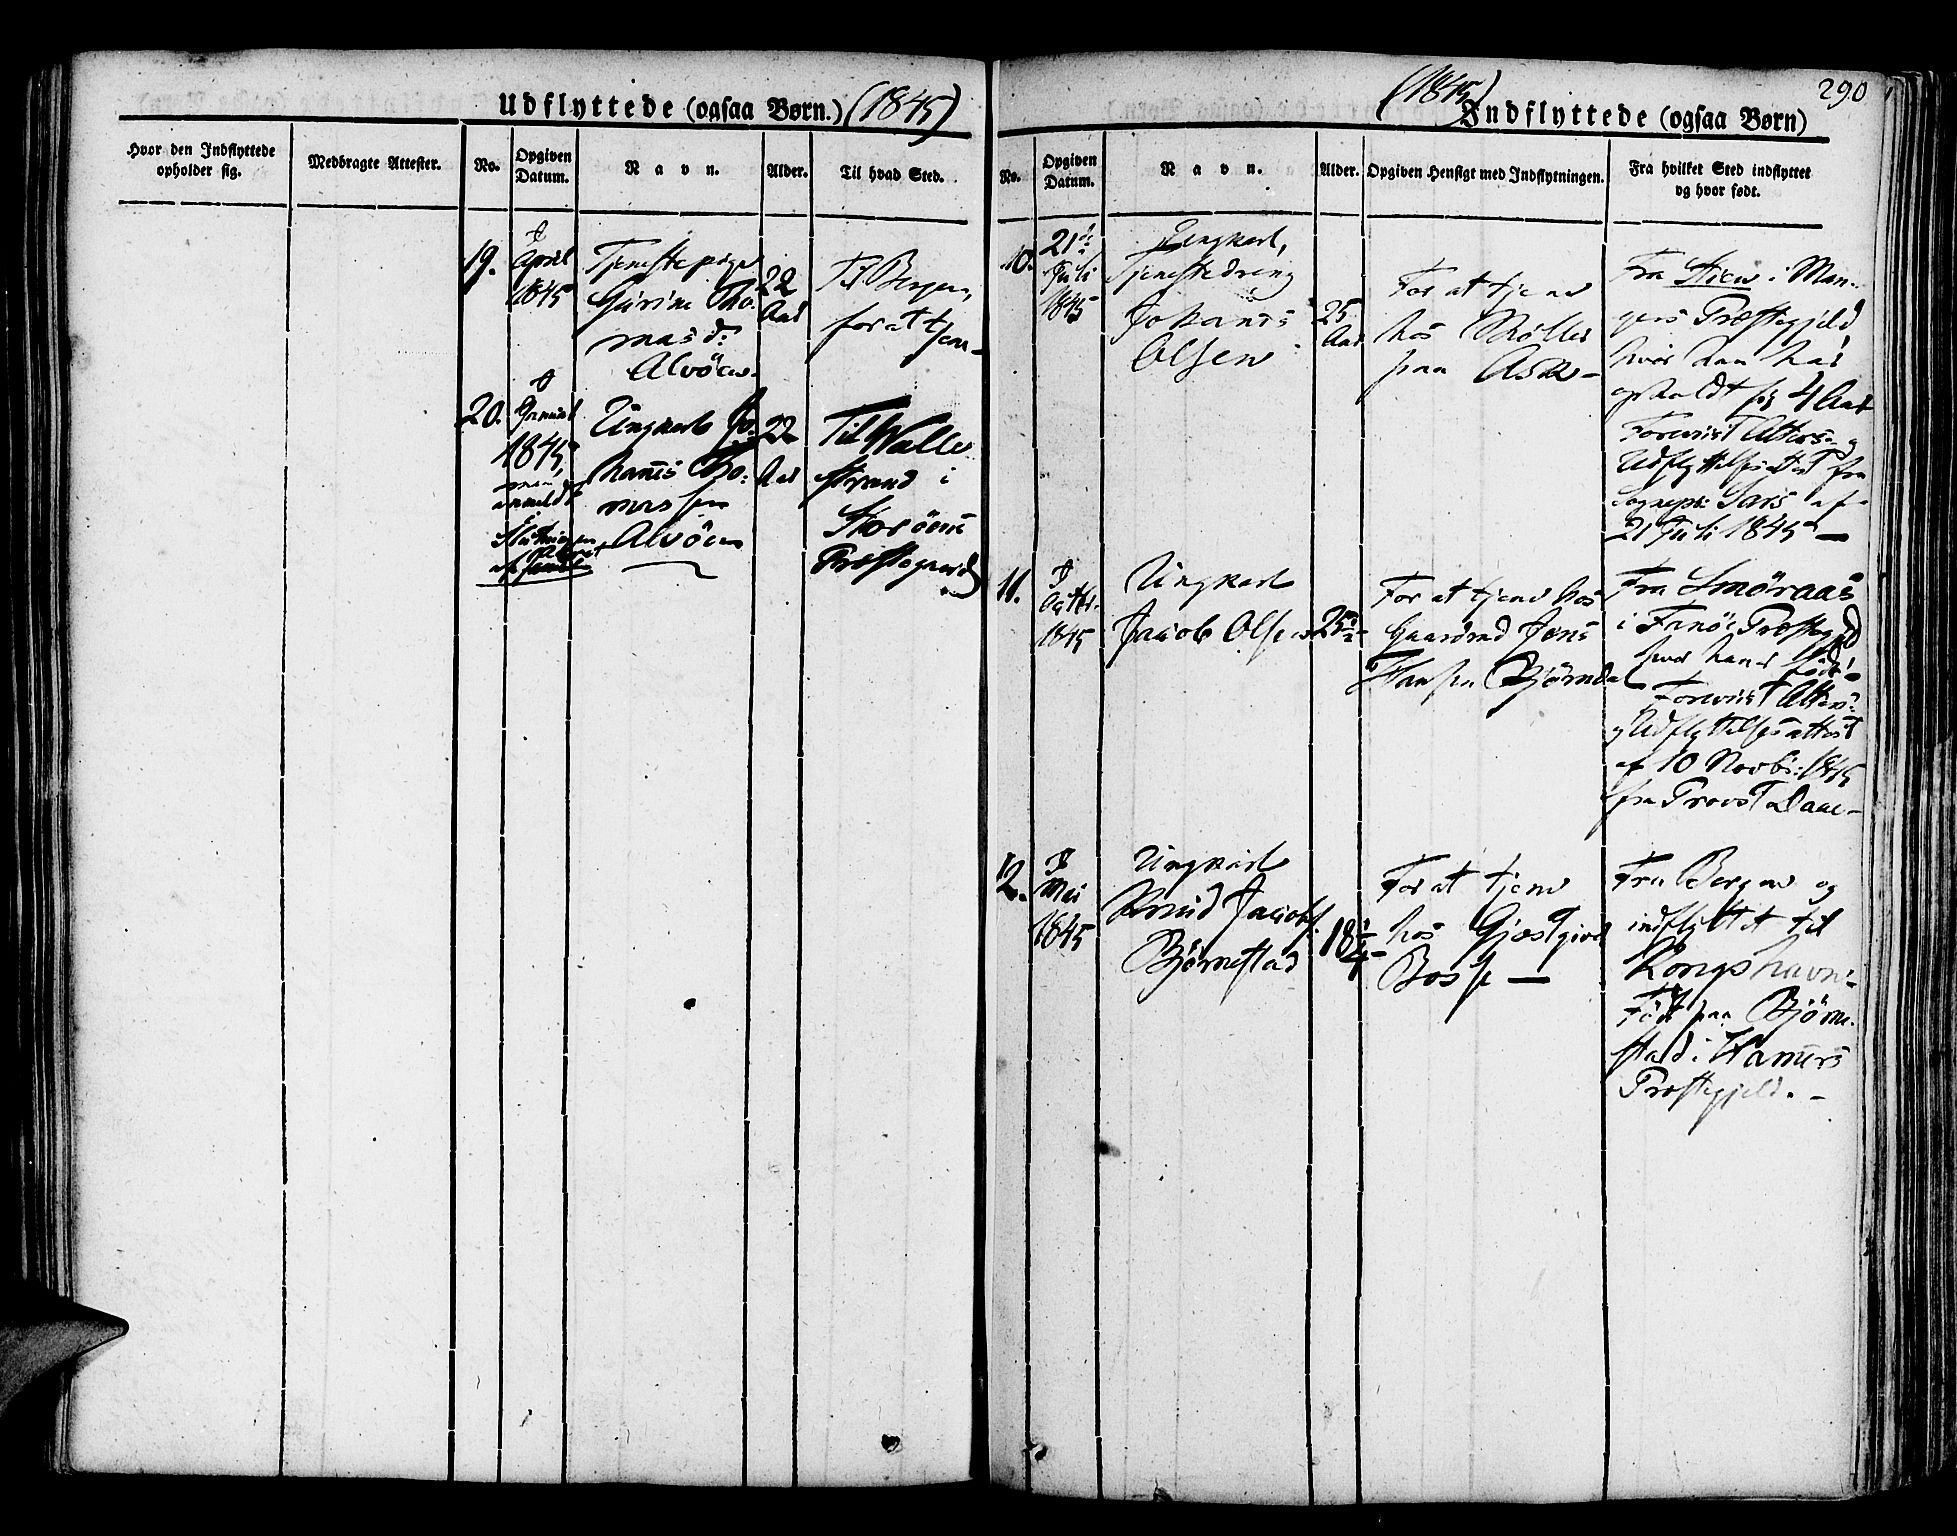 Udflyttede (ogsaa Børn.) (1845)
Hvor den Indflyttede
opholder sig.
Medbragte Attester.
No.
Opgiven
Datum.
Navn.
Alder.
Til hvad Sted.
19.
I
April
1845
Tjenestepige
Gurine Tho-
masd:
Alvöen.
22
Aar
Til Bergen,
for at tjene
20.
I
1845,
anmeldt
Ungkarl Jo-
hannes Tho-
massen
Alvöen
22
Aar
Til Walle
strand i
Storöens
Præstegjeld
(1845)
290
Indflyttede (ogsaa Børn)
No.
Opgiven
Datum.
Navn.
Alder.
Opgiven Hensigt med Indflytningen.
Fra hvilket Sted indflyttet
og hvor født.
10.
21de
Juli
1845
Ungkarl,
Tjenestedreng
Johannes
Olsen
25
Aar
For at tjene
hos Møller
paa Ask
Fra Steen i Man-
gers Præstegjeld
hvor han har
opholdt sig 4 Aar
Foreviist Attest og
Udflyttelsesattest fra
Sognepr: Sars af
21 Juli 1845
11.
I
Octbr.
1845
Ungkarl
Jacob Olsen
25½
For at tjene hos
Gaardmd Jens
Hansen Björndal
Fra Smöraas
i Fanöe Præstegjeld
hvor han er född
Foreviist Attest
og Udflyttelsesattest
af 10 Novbr: 1845
fra Provst Daae
12.
I
Mai
1845
Ungkarl
Knud Jacobs.
Björnestad
18¼
For at tjene
hos Gjæstgiver
Bosse
Fra Bergen og
indflyttet til
Kongshavn
Född paa Björne-
stad i Hammers
Præstegjeld.